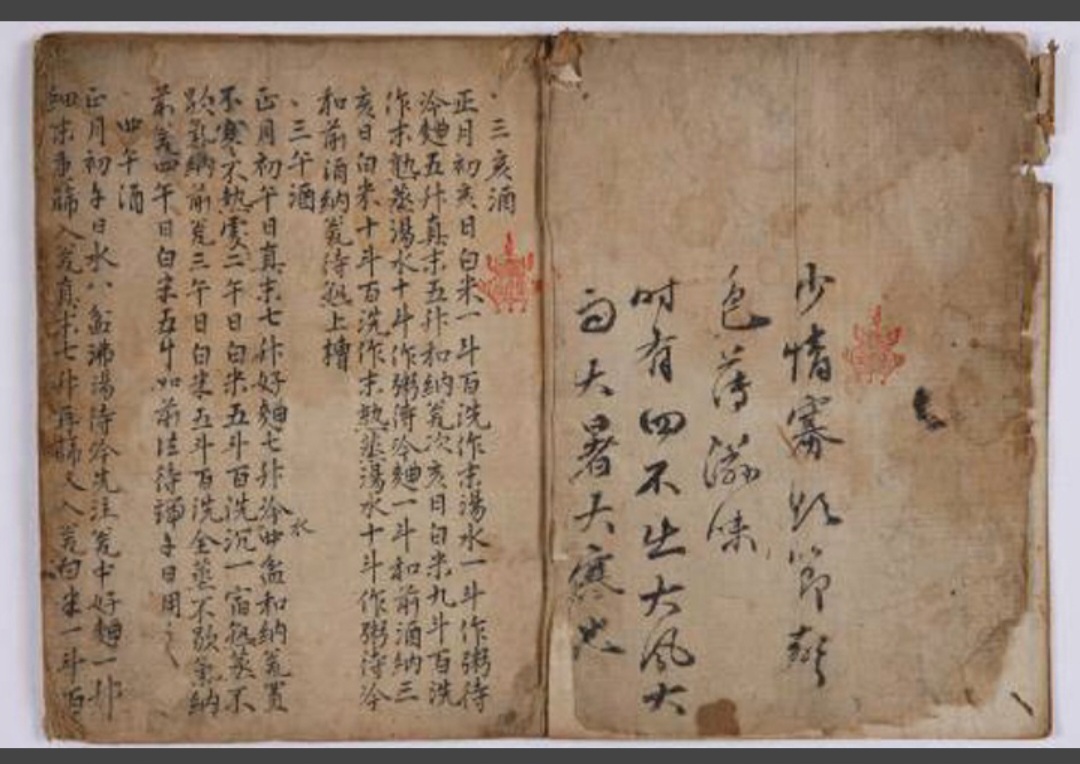 少情寡欲節聲
色薄滋味
时有四不出大風大
雨大暑大寒也
三亥酒
正月初亥日白米一斗百洗作末湯水一斗作粥待
冷麯五升真末五升和納瓮次亥日白米九斗百洗
作末熟蒸湯水十斗作粥待冷麯一斗和前酒納三
亥日白米十斗百洗作末熟蒸湯水十斗作粥待冷
和前酒納瓮待熟上槽
三午酒
正月初午日真末七升好麯七升冷水四盆和納瓮置
不寒不熱處二午日白米五斗百洗沉一宿熟蒸不
歇氣納前瓮三午日白米五斗百洗全蒸不歇氣納
前瓮四午日白米五斗如前法待端午日用之
四午酒
正月初午日水八盆沸湯待冷先注瓮中好麯一升
細末重篩入瓮真末七升再篩又入瓮白米一斗百